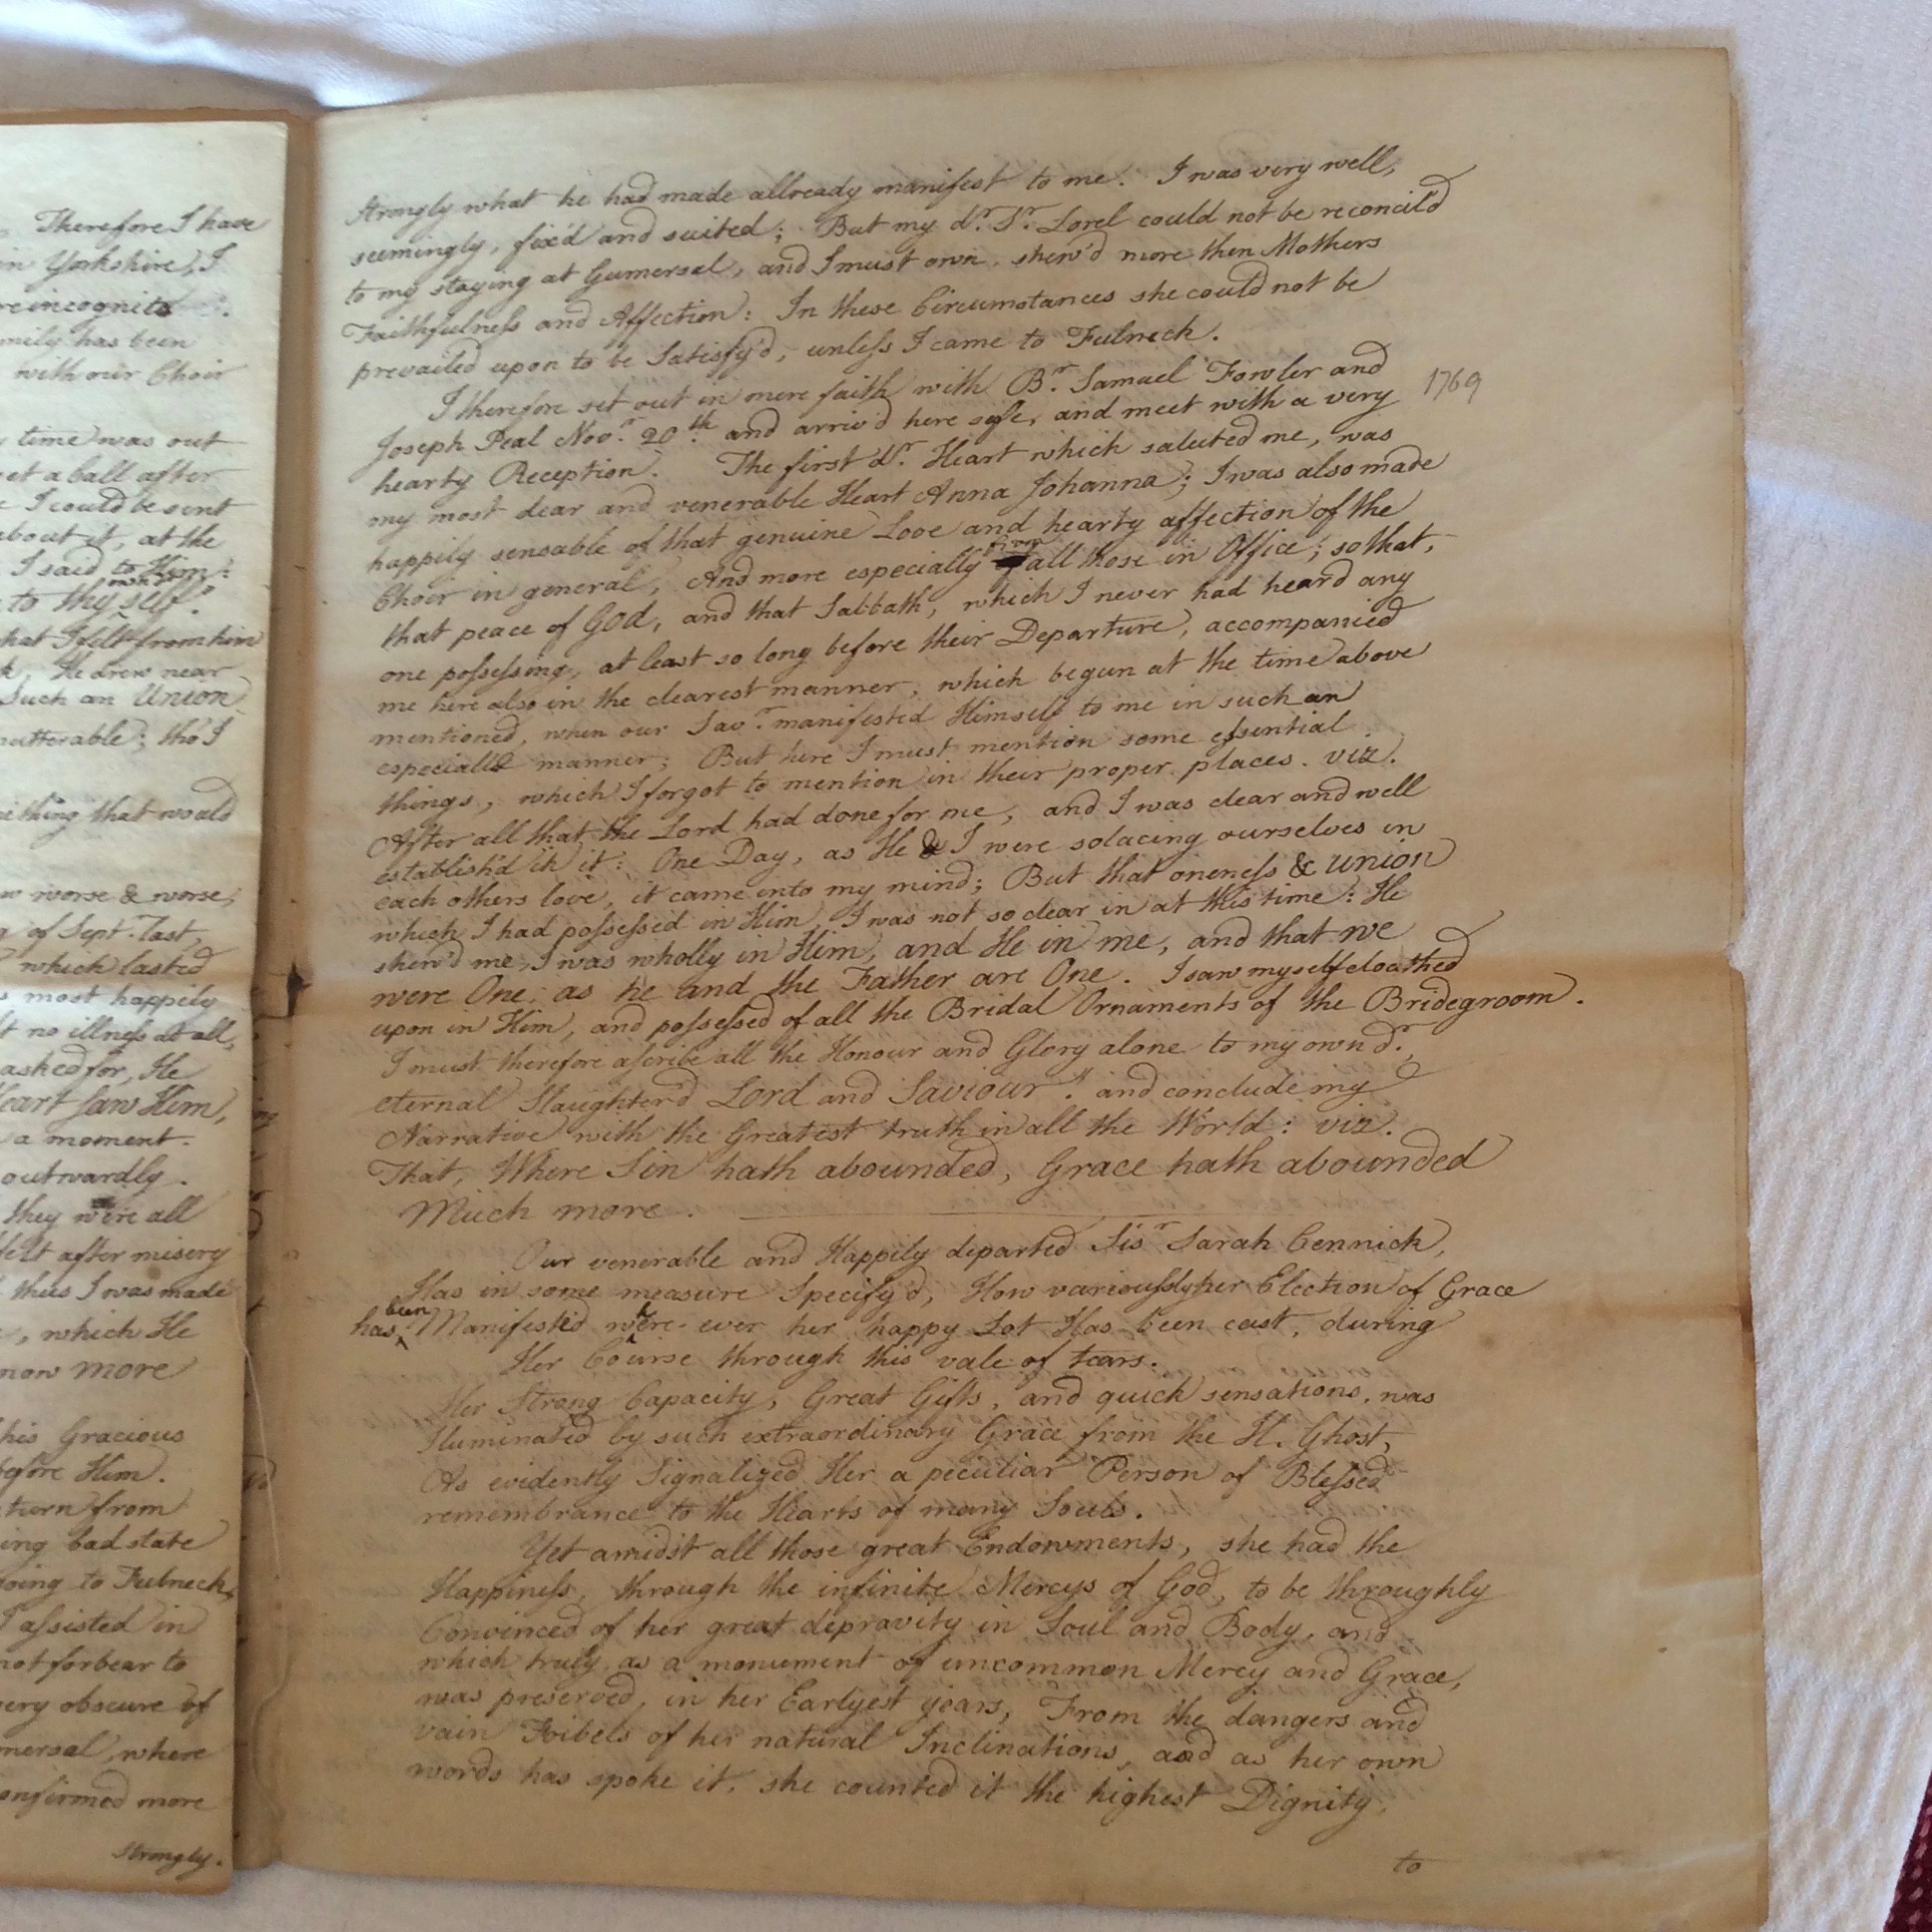 Therefore I have
in Yorkshire, I
re incognito.
mily has been
with our Choir
time was out
et a ball after
I could be sent
about it, at the
I said to Him:
to thy own self.
hat I felt from him
He drew near
Such an Union
unutterable; tho' I
ething that would
worse & worse,
of Sept. last,
which lasted
most happily
t no illness at all,
asked for, He
Heart saw Him,
a moment.
outwardly.
they were all
felt after misery
thus I was made
, which He
now more
his Gracious
before Him.
turn from
ing bad state
going to Fulneck,
I assisted in
not forbear to
very obscure of
mersal, where
onfirmed more
strongly.
strongly what he had made allready manifest to me. I was very well,
seemingly, fix'd and suited; But my dr. Sr. Lorel could not be reconcil'd
to my staying at Gumersal, and I must own, shew'd more then Mothers
Faithfulness and Affection: In these Circumstances she could not be
prevailed upon to be Satisfy'd, unless I came to Fulneck.
I therefore set out in mere faith with Br. Samuel Fowler and
Joseph Peal Novr. 20th. and arriv'd here safe, and meet with a very 1769
hearty Reception. The first dr. Heart which saluted me, was
my most dear and venerable Heart Anna Johanna; I was also made
happily sensable of that genuine Love and hearty affection of the
Choir in general, And more especially from all those in Office; so that,
that peace of God, and that Sabbath, which I never had heard any
one possessing, at least so long before their Departure, accompanied
me here also in the clearest manner, which begun at the time above
mentioned, when our Savr. manifested Himself to me in such an
especiall manner; But here I must mention some essential
things, which I forgot to mention in their proper places. viz.
After all that the Lord had done for me, and I was clear and well
establish'd in it: One Day, as He & I were solacing ourselves in
each others love, it came into my mind; But that oneness & union
which I had possessed in Him, I was not so clear in at this time: He
shew'd me, I was wholly in Him, and He in me, and that we
were One; as he and the Father are One. I saw myself cloathed
upon in Him, and possessed of all the Bridal Ornaments of the Bridegroom.
I must therefore ascribe all the Honour and Glory alone to my own dr.,
eternal Slaughter'd Lord and Saviour. and conclude my
Narrative with the Greatest truth in all the World: viz.
That, Where Sin hath abounded, Grace hath abounded
Much more.
Our venerable and Happily departed Sisr Sarah Cennick,
Has in some measure Specify'd, How variously her Election of Grace
has been Manifested where-ever her happy Lot Has been cast, during
Her Course through this vale of tears.
Her Strong Capacity, Great Gifts, and quick sensations, was
Iluminated by such extraordinary Grace from the H. Ghost,
As evidently Signalized Her a peculiar Person of Blessed
remembrance to the Hearts of many Souls.
Yet amidst all those great Endowments, she had the
Happiness, through the infinite Mercys of God, to be throughly
Convinced of her great depravity in Soul and Body, and
which truly, as a monument of uncommon Mercy and Grace,
was preserved, in her Earlyest years, From the dangers and
vain Foibels of her natural Inclinations, and as her own
words has spoke it, she counted it the highest Dignity,
to